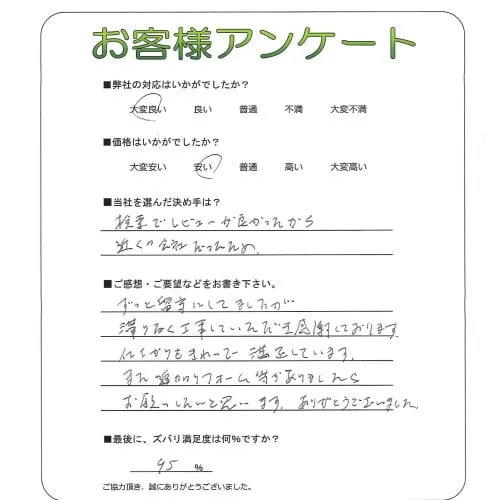 お客様アンケート
■弊社の対応はいかがでしたか？
大変良い 良い 普通 不満 大変不満
■価格はいかがでしたか？
大変安い 安い 普通 高い 大変高い
■当社を選んだ決め手は？
検索でレビューが良かったから
近くの会社だったため。
■ご感想・ご要望などをお書き下さい。
ずっと留守にしてましたが
滞りなく工事していただき感謝しております
仕上がりもきれいで満足しています。
また追加リフォーム等がありましたら
お願いしたいと思います。ありがとうございました。
■最後に、ズバリ満足度は何%ですか？
95 %
ご協力頂き、誠にありがとうございました。